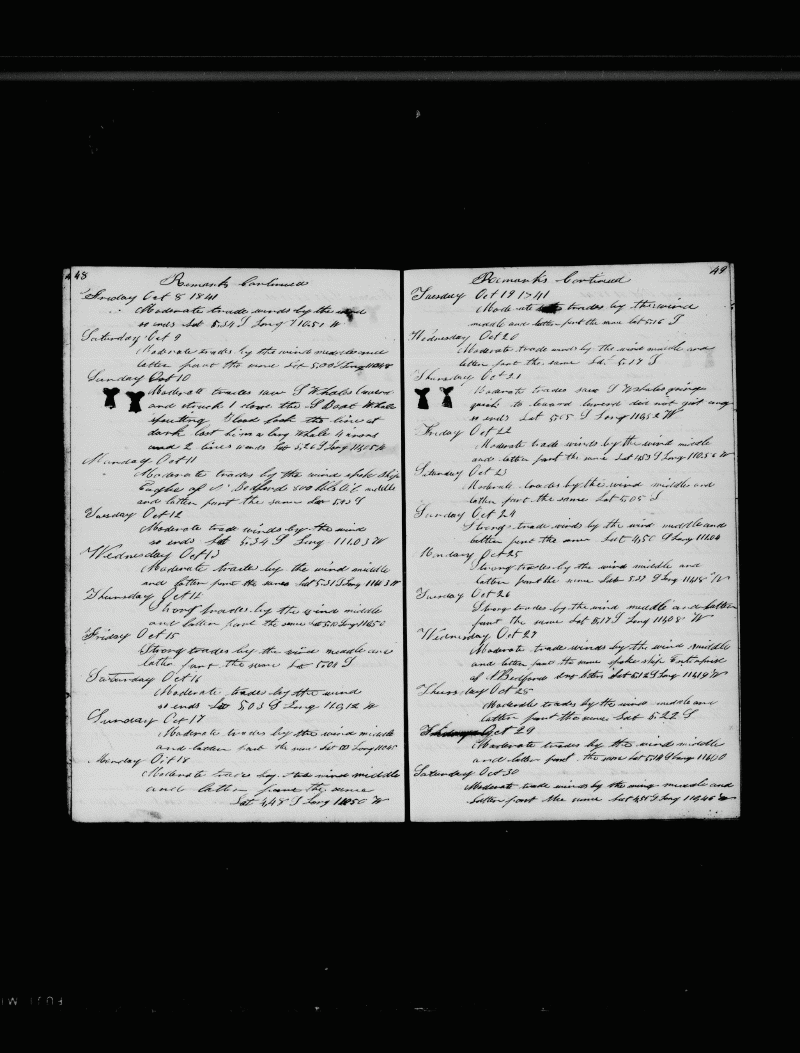 48
Remarks Continued
Friday Oct 8 1841
Moderate trade winds by the wind
so ends Lat 5.34 S Long 110.51 W
Saturday Oct 9
Moderate trades by the wind middle and
latter part the same Lat 5.00 S Long
Sunday Oct 10
Moderate trades saw S Whales lowered
and struck 1 stove the S Boat Whale
spouting Blood took the line at
dark lost him a long Whale 4 irons
and 2 lines ends Lat 5.26 S Long
Monday Oct 11
Moderate trades by the wind spok ship
Eagle of N Bedford 800 bbls Oil middle
and latter part the same Lat 5.13 S
Tuesday Oct 12
Moderate trade winds by the wind
so ends Lat 5.34 S Long 111.03 W
Wednesday Oct 13
Moderate trades by the wind middle
and latter part the same Lat 5.31 S Long
Thursday Oct 14
Strong trades by the wind middle
and latter part the same Lat Long
Friday Oct 15
Strong trades by the wind middle and
latter part the same Lat 5.08 S
Saturday Oct 16
Moderate trades by the wind
so ends Lat 5.03 S Long 110,12 W
Sunday Oct 17
Moderate trades by the wind middle
and latter part the same Lat Long
Monday Oct 18
Moderate trades by the wind middle
and latter part the same
Lat 4,48 S Long W
49
Remarks Continued
Tuesday Oct 19 1841
Moderate trades by the wind
middle and latter part the same Lat 5.16 S
Wednesday Oct 20
Moderate trade winds by the wind middle and
latter part the same Lat 5.17 S
Thursday Oct 21
Moderate trades saw S Whales going
quick to leward lowerd did not git any
so ends Lat 5.05 S Long W
Friday Oct 22
Moderate trade winds by the wind middle
and latter part the same Lat Long 110.56 W
Saturday Oct 23
Moderate trades by the wind middle and
latter part the same Lat 5.05 S
Sunday Oct 24
Strong trade winds by the wind middle and
latter part the same Lat 4,50 S Long
Monday Oct 25
Strong trades by the wind middle and
latter part the same Lat S Long W
Tuesday Oct 26
Strong trades by the wind middle and latter
part the same Lat 5.17 S Long W
Wednesday Oct 27
Moderate trade winds by the wind middle
and latter part the same spoke ship
of N Bedford Lat Long W
Thursday Oct 28
Moderate trades by the wind middle and
latter part the same Lat 5.22 S
Oct 29
Moderate trades by the wind middle
and latter part the same Lat Long
Saturday Oct 30
Moderate trade winds by the wing middle and
latter part the same Lat 4,55 S Long 110,46 W